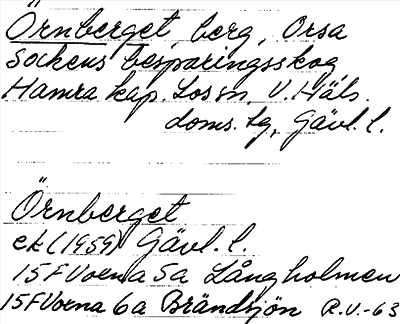 Örnberget, berg, Orsa
Sockens besparingsskog,
Hamra kap. Los sn, V. Häls.
doms. tg, Gävl. l.
Örnberget
ek (1959) Gävl. l.
15F Voxna 5a Långholmen
15F Voxna 6a Brändsjön R.V.-63